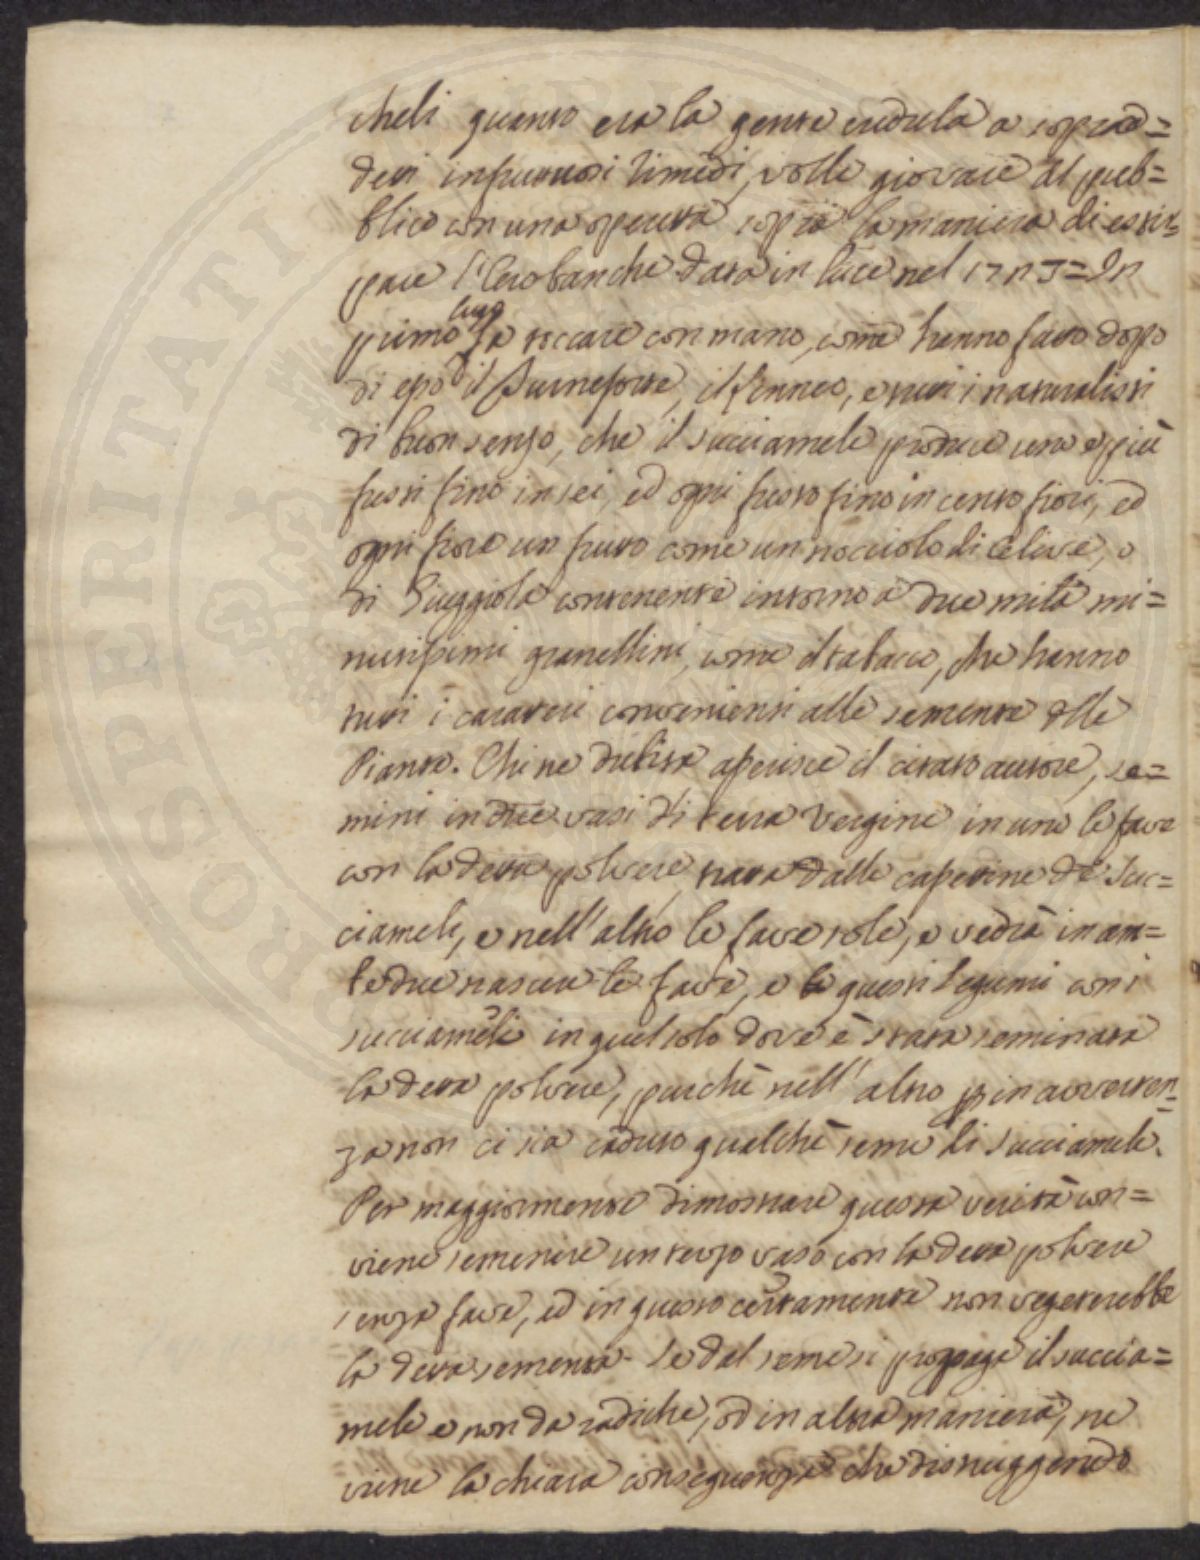 cheli quanto era la gente credula a soprad=
detti infruttuosi rimedi, volle giovare al pub=
blico con una operetta sopra la maniera di estir=
pare l'Orobanche data in luce nel 1723= In
primo luogo fa toccare con mano, come hanno fatto dopo
di esso il Turnefort, il Linneo, e tutti i naturalisti
di buon senso, che il succiamele produce uno e più
fusti fino in sei, ed ogni fusto fino in cento fiori, ed
ogni fiore un frutto come un nocciolo di Olive, o
di Giuggiola contenente intorno a due mila mi=
nutissimi granellini, come il tabacco, che hanno
tutti i caratteri convenienti alle semente delle
Piante. Chi ne dubita asserisce il citato autore, se=
mini in due vasi di terra Vergine in uno le fave
con la detta polvere, nata dalle casettine de Suc=
ciameli, e nell'altro le fave sole, e vedrà in am=
bedue nascere le fave, e questi legumi con i
succiameli in quel solo dove è stata seminata
la detta polvere, purchè nell'altro p inavverten=
za non ci sia caduto qualche seme di succiamele.
Per maggiormente dimostrare questa verità con=
viene semenire un terzo vaso con la detta polvere
senza fave, ed in questo certamente non vegeterebbe
la detta sementa. Se dal seme si propaga il succia=
mele e non da radiche, od in altra maniera, ne
viene la chiara conseguenza che distruggendo
PROSPERITATI PUBLI